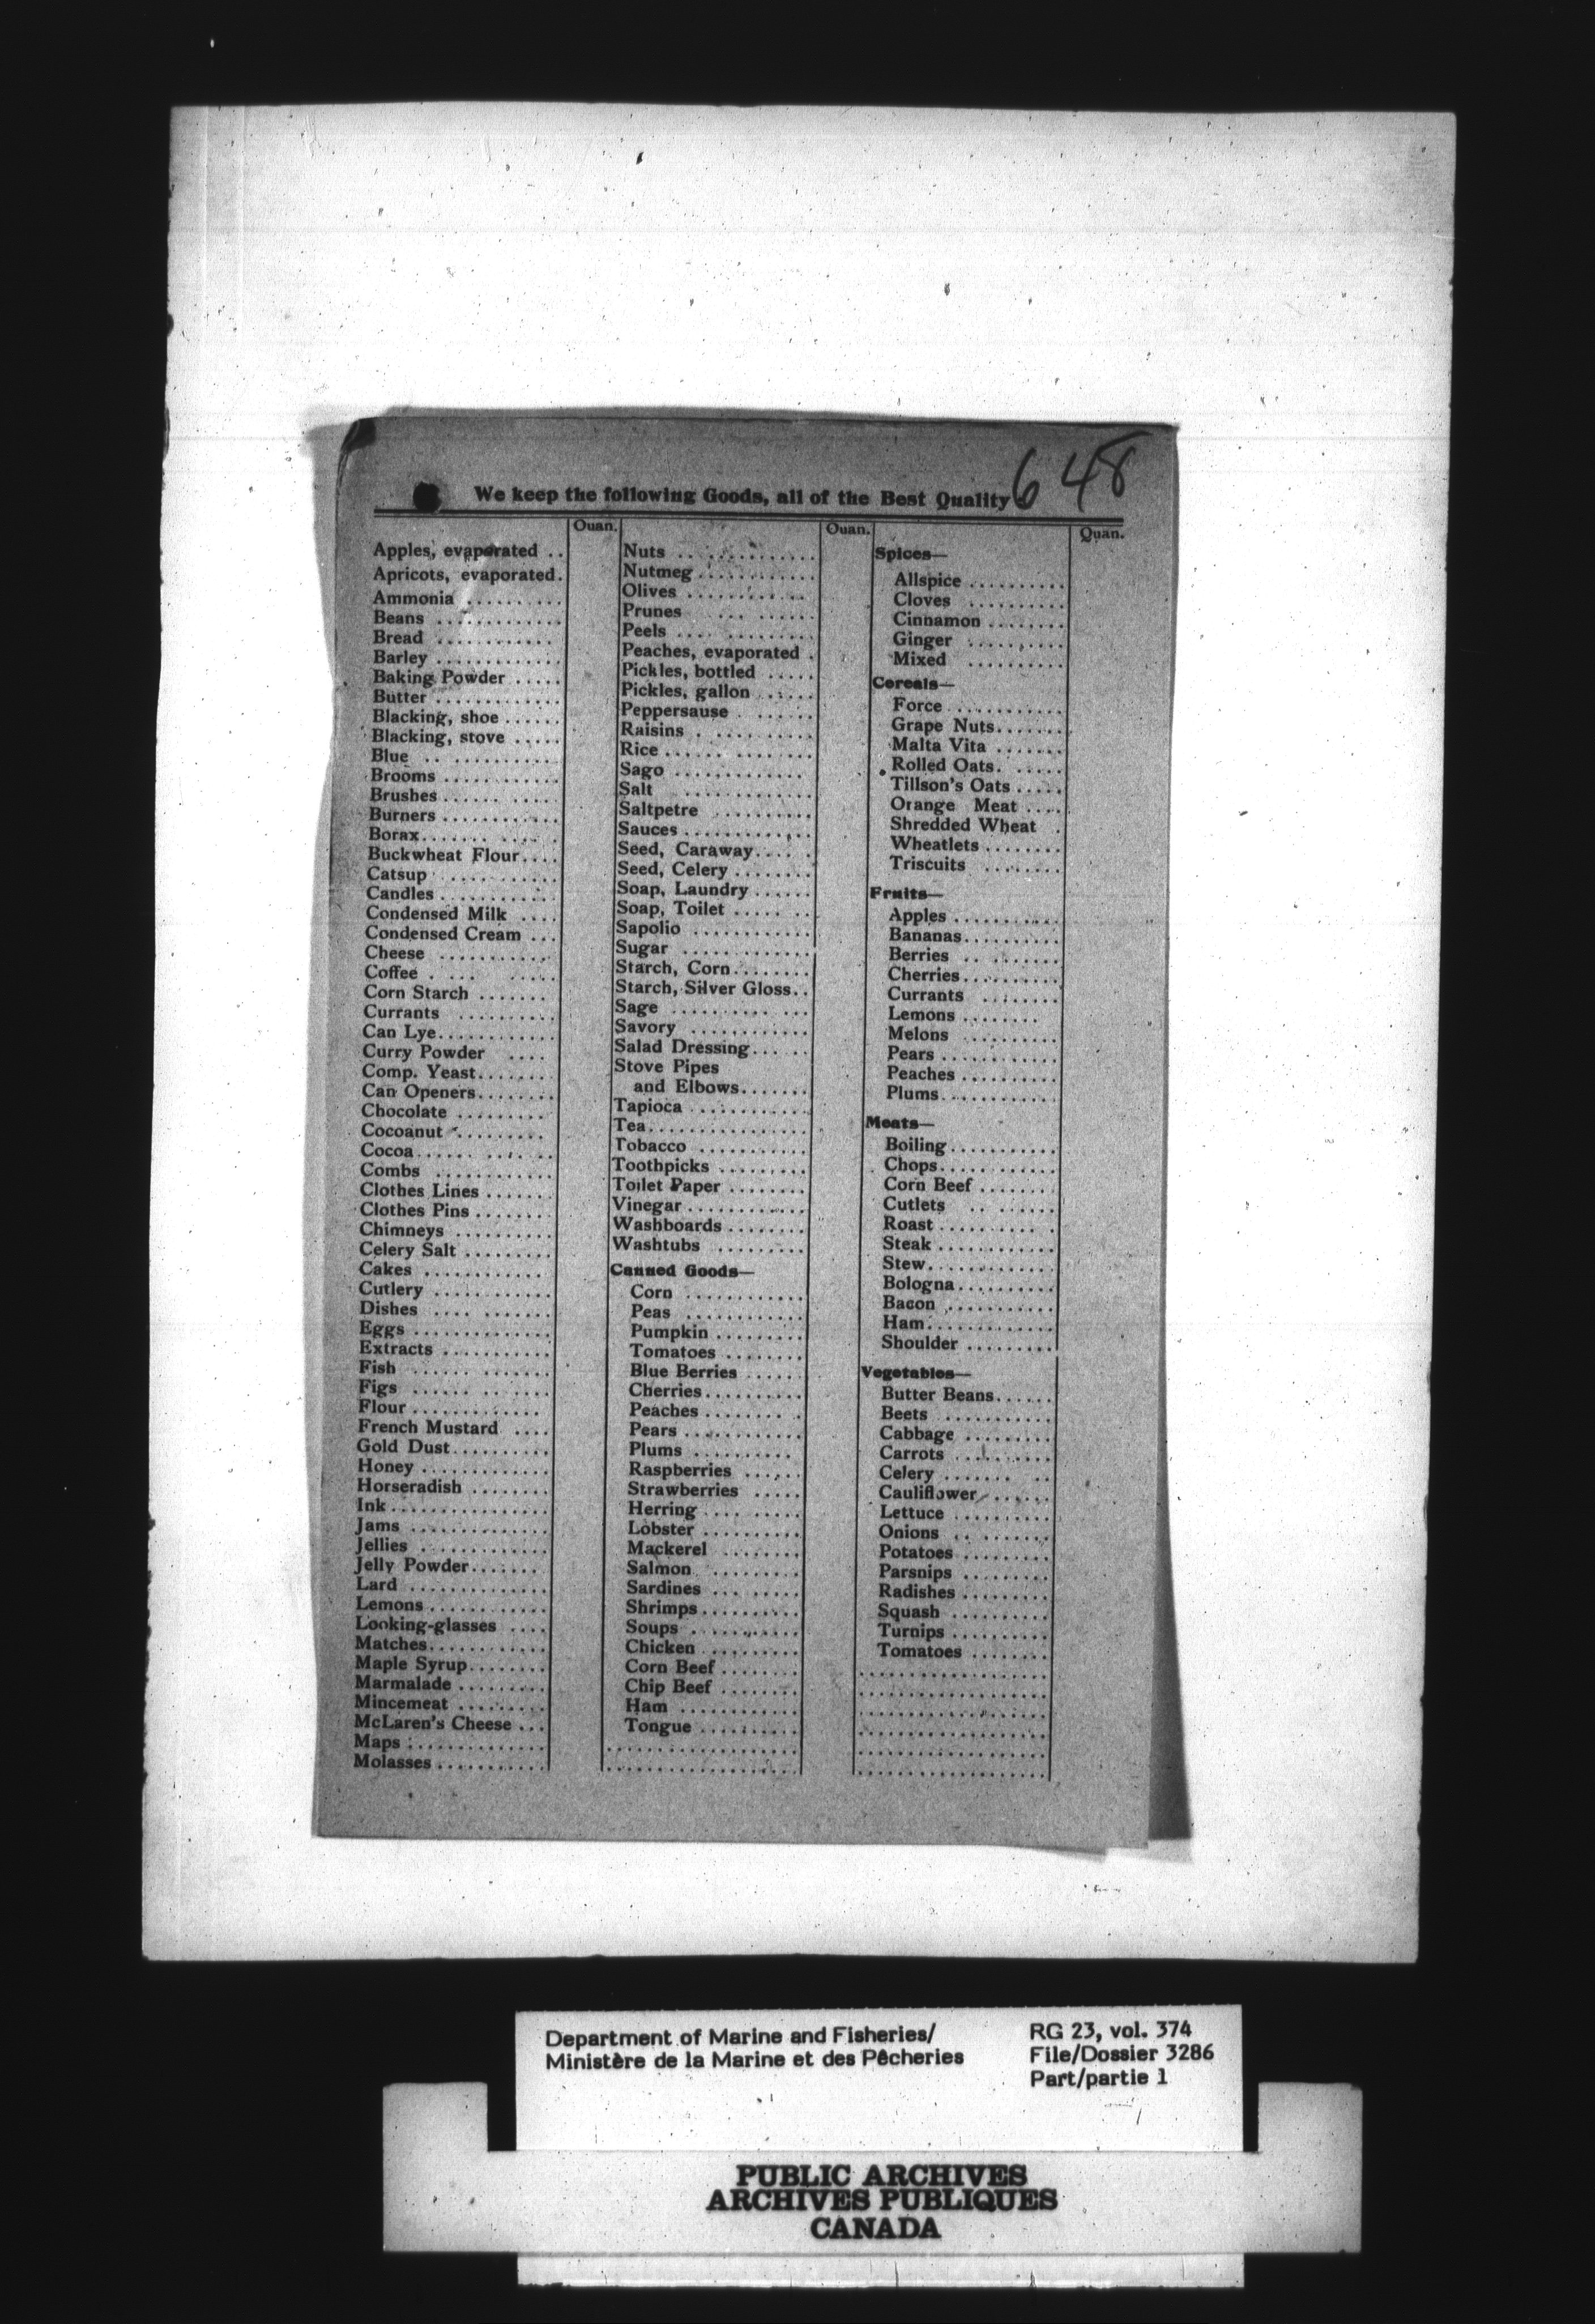 648
We keep the following Goods, all of the Best Quality
Quan.
Apples, evaporated ..
Apricots, evaporated.
Ammonia ..........
Beans .............
Bread ............
Barley .............
Baking Powder .....
Butter .............
Blacking, shoe ......
Blacking, stove .....
Blue .. ..........
Brooms ............
Brushes...... .....
Burners ............
Borax....... .... .
Buckwheat Flour....
Catsup ...........
Candles ............
Condensed Milk ....
Condensed Cream ...
Cheese ...........
Coffee . ... .....
Corn Starch .......
Currants ..........
Can Lye............
Curry Powder ....
Comp. Yeast.......
Can Openers........
Chocolate .........
Cocoanut .........
Cocoa...... ... ..
Combs ............
Clothes Lines .......
Clothes Pins ........
Chimneys ..........
Celery Salt .........
Cakes ............
Cutlery ............
Dishes .... .......
Eggs ..............
Extracts ...........
Fish ...... .......
Figs ...... .......
Flour .............
French Mustard ....
Gold Dust..........
Honey .............
Horseradish ........
Ink................
Jams ..............
Jellies .............
Jelly Powder.......
Lard ..............
Lemons............
Looking-glasses ....
Matches............
Maple Syrup........
Marmalade .........
Mincemeat .........
McLaren's Cheese ...
Maps ..............
Molasses...........
Quan.
Nuts .. ...........
Nutmeg ............
Olives ............
Prunes ... ......
Peels .... .........
Peaches, evaporated .
Pickles, bottled .....
Pickles, gallon .....
Peppersause . ......
Raisins . .........
Rice .... ........
Sago .............
Salt .............
Saltpetre .........
Sauces .............
Seed, Caraway.... .
Seed, Celery ........
Soap, Laundry ......
Soap, Toilet ..... ..
Sapolio ............
Sugar .............
Starch, Corn........
Starch, Silver Gloss..
Sage .......... ...
Savory ............
Salad Dressing.... ..
Stove Pipes
and Elbows.......
Tapioca ............
Tea................
Tobacco ...........
Toothpicks .........
Toilet Paper ........
Vinegar ............
Washboards ........
Washtubs .........
Canned Goods—
Corn ............
Peas ............
Pumpkin .........
Tomatoes ........
Blue Berries ......
Cherries..........
Peaches ........ .
Pears ............
Plums ..........
Raspberries ......
Strawberries .....
Herring .... .....
Lobster ..........
Mackerel ........
Salmon .........
Sardines ... .....
Shrimps..........
Soups ...........
Chicken ..........
Corn Beef ........
Chip Beef ........
Ham ............
Tongue ..........
Quan.
Spices—
Allspice ..........
Cloves ..........
Cinnamon ........
Ginger ..........
Mixed ..........
Cereals—
Force ............
Grape Nuts.......
Malta Vita .......
Rolled Oats. .....
Tillson's Oats .....
Orange Meat ....
Shredded Wheat .
Wheatlets ........
Triscuits ........
Fruits—
Apples ...........
Bananas..........
Berries .. .......
Cherries..........
Currants ........
Lemons ........
Melons ..........
Pears ............
Peaches ..........
Plums............
Meats—
Boiling...........
Chops.... .......
Corn Beef ........
Cutlets .. ......
Roast .......... .
Steak ............
Stew.............
Bologna..........
Bacon ...........
Ham.............
Shoulder .........
Vegetables—
Butter Beans......
Beets ...........
Cabbage .........
Carrots ..........
Celery ....... ..
Cauliflower .......
Lettuce ..........
Onions .. .......
Potatoes .........
Parsnips .........
Radishes .........
Squash ..........
Turnips ..........
Tomatoes ........
Department of Marine and Fisheries/
Ministère de la Marine et des Pêcheries
RG 23, vol. 374
File/Dossier 3286
Part/partie 1
PUBLIC ARCHIVES
ARCHIVES PUBLIQUES
CANADA